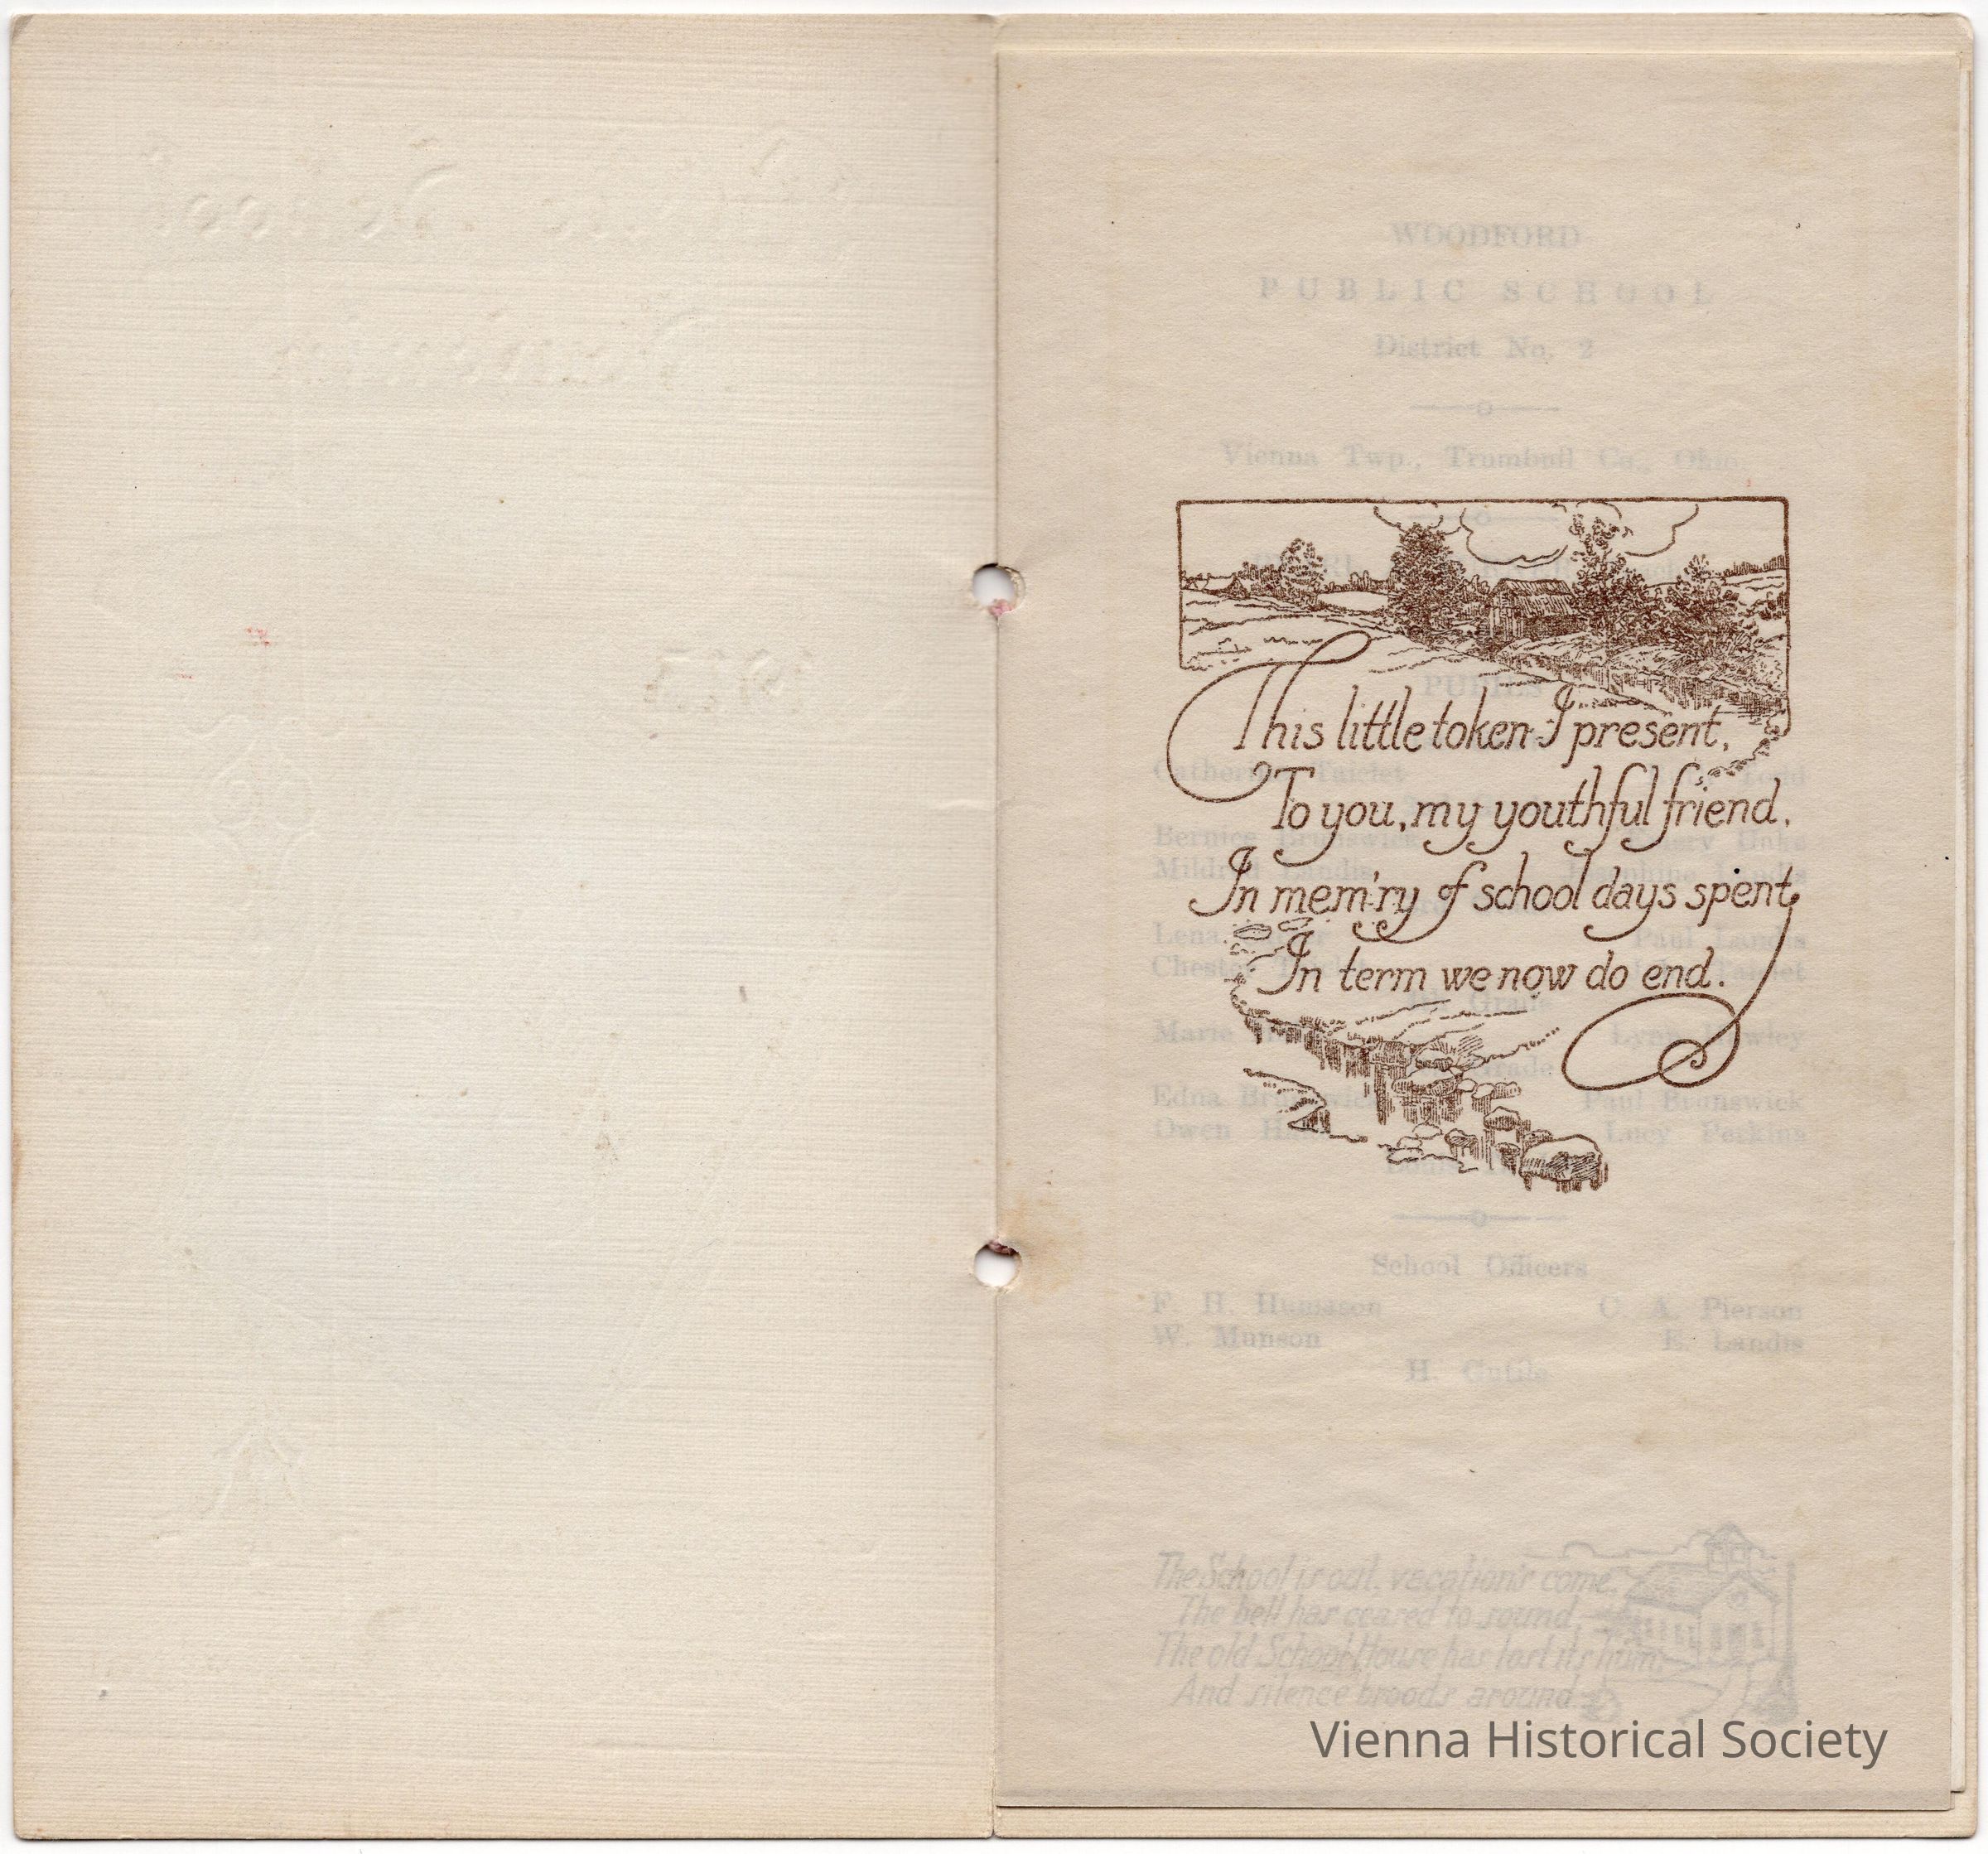 WOODFORD
PUBLIC SCHOOL
District No. 2
Vienna Twp., Trumbull Co., Ohio
PUPILS
This little token I present,
To you, my youthful friend,
In mem'ry of school days spent,
In term we now do end.
Catherine Taiclet
Bernice
Mildred Landis Josephine Landis
Lena Paul Landis
Chester Taiclet
Grade
Marie
Grade
Edna Brunswick Paul Brunswick
Owen Lucy Perkins
School Officers
F. H. Humason C. A. Pierson
W. Munson E. Landis
H.
The School is out, vacation's come,
The bell has ceased to sound,
The old School House has lost its hum,
And silence broods around.
Vienna Historical Society